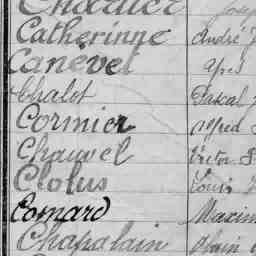 Catherinne André
Canevet Yves
Chalot Pascal
Cormier Alfred
Chauvel Victor
Clolus Louis
Comard Maxim
Chapalain